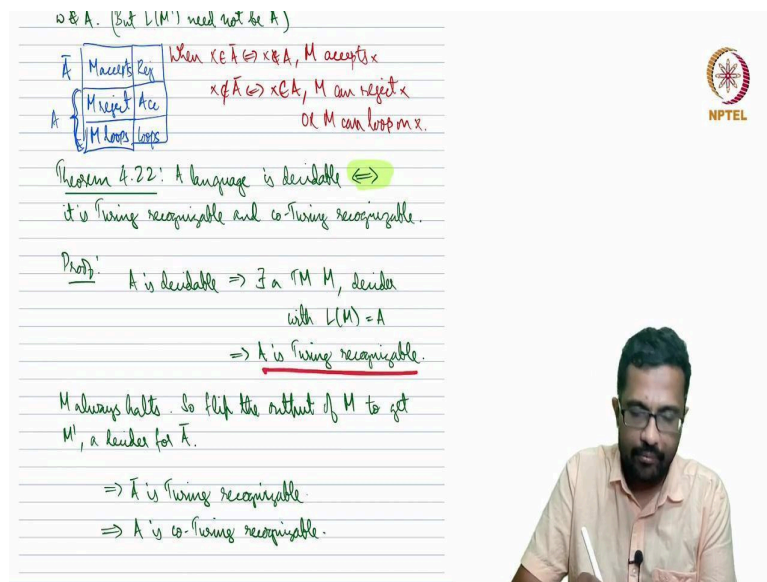 w ∉ A. (But L(M') need not be A)
Ā M accepts Rej
A { M reject Acc
M loops loops
When x∈Ā ⇔ x∉A, M accepts x
x∉Ā ⇔ x∈A, M can reject x
OR M can loop on x.
NPTEL
Theorem 4.22: A language is decidable ⇔
it is Turing recognizable and co-Turing recognizable.
Proof:
A is decidable ⇒ ∃ a TM M, decider
with L(M) = A
⇒ A is Turing recognizable.
M always halts. So flip the output of M to get
M', a decider for Ā.
⇒ Ā is Turing recognizable.
⇒ A is co-Turing recognizable.